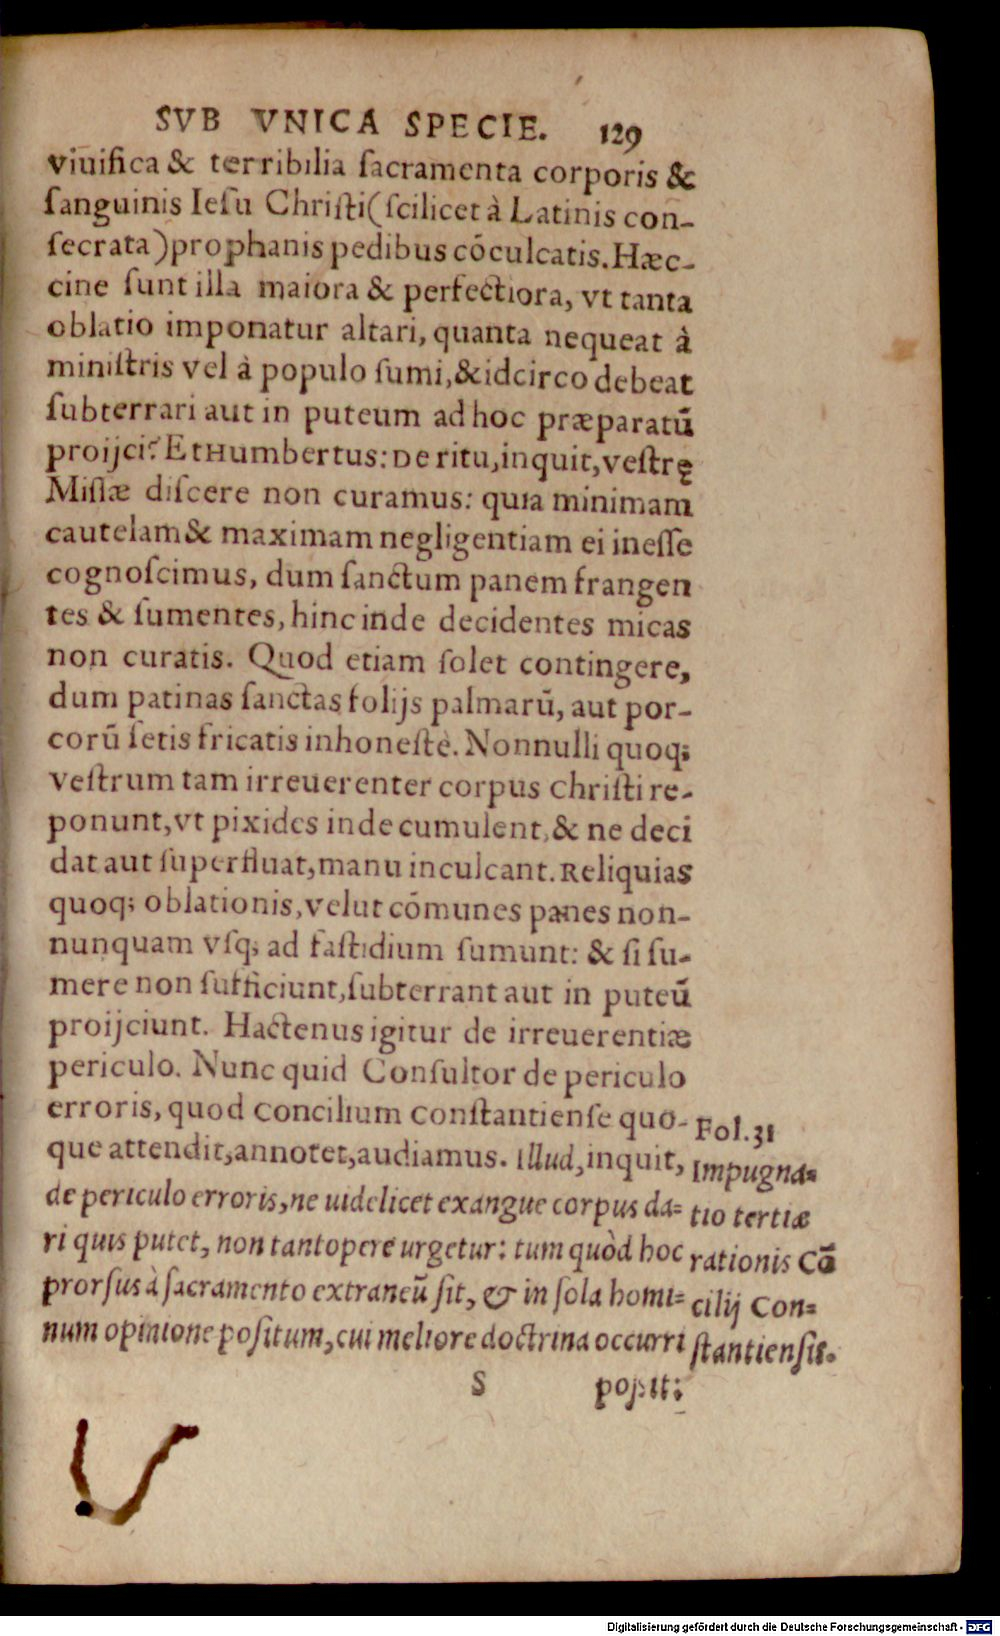 SVB VNICA SPECIE. 129
viuifica & terribilia ſacramenta corporis &
ſanguinis Ieſu Chriſti(ſcilicet à Latinis con-
ſecrata)prophanis pedibus cōculcatis. Hæc-
cine ſunt illa maiora & perfectiora, vt tanta
oblatio imponatur altari, quanta nequeat à
miniſtris vel à populo ſumi, & idcirco debeat
ſubterrari aut in puteum ad hoc præparatū
proijci? Et Humbertus: De ritu, inquit, veſtrę
Miſſæ diſcere non curamus: quia minimam
cautelam & maximam negligentiam ei ineſſe
cognoſcimus, dum ſanctum panem frangen
tes & ſumentes, hinc inde decidentes micas
non curatis. Quod etiam ſolet contingere,
dum patinas ſanctas folijs palmarū, aut por-
corū ſetis fricatis inhoneſtè. Nonnulli quoq;
veſtrum tam irreuerenter corpus Chriſti re-
ponunt, vt pixides inde cumulent, & ne deci
dat aut ſuperfluat, manu inculcant. Reliquias
quoq; oblationis, velut cōmunes panes non-
nunquam vſq; ad faſtidium ſumunt: & ſi ſu-
mere non ſufficiunt, ſubterrant aut in puteū
proijciunt. Hactenus igitur de irreuerentiæ
periculo. Nunc quid Conſultor de periculo
erroris, quod Concilium Conſtantienſe quo-
que attendit, annotet, audiamus. Illud, inquit,
de periculo erroris, ne uidelicet exangue corpus da-
ri quis putet, non tantopere urgetur: tum quòd hoc
prorſus à ſacramento extraneū ſit, & in ſola homi-
num opinione poſitum, cui meliore doctrina occurri
Fol. 31
Impugna-
tio tertiæ
rationis Cō
cilij Con-
ſtantienſis.
S poſsit:
Digitalisierung gefördert durch die Deutsche Forschungsgemeinschaft - DFG